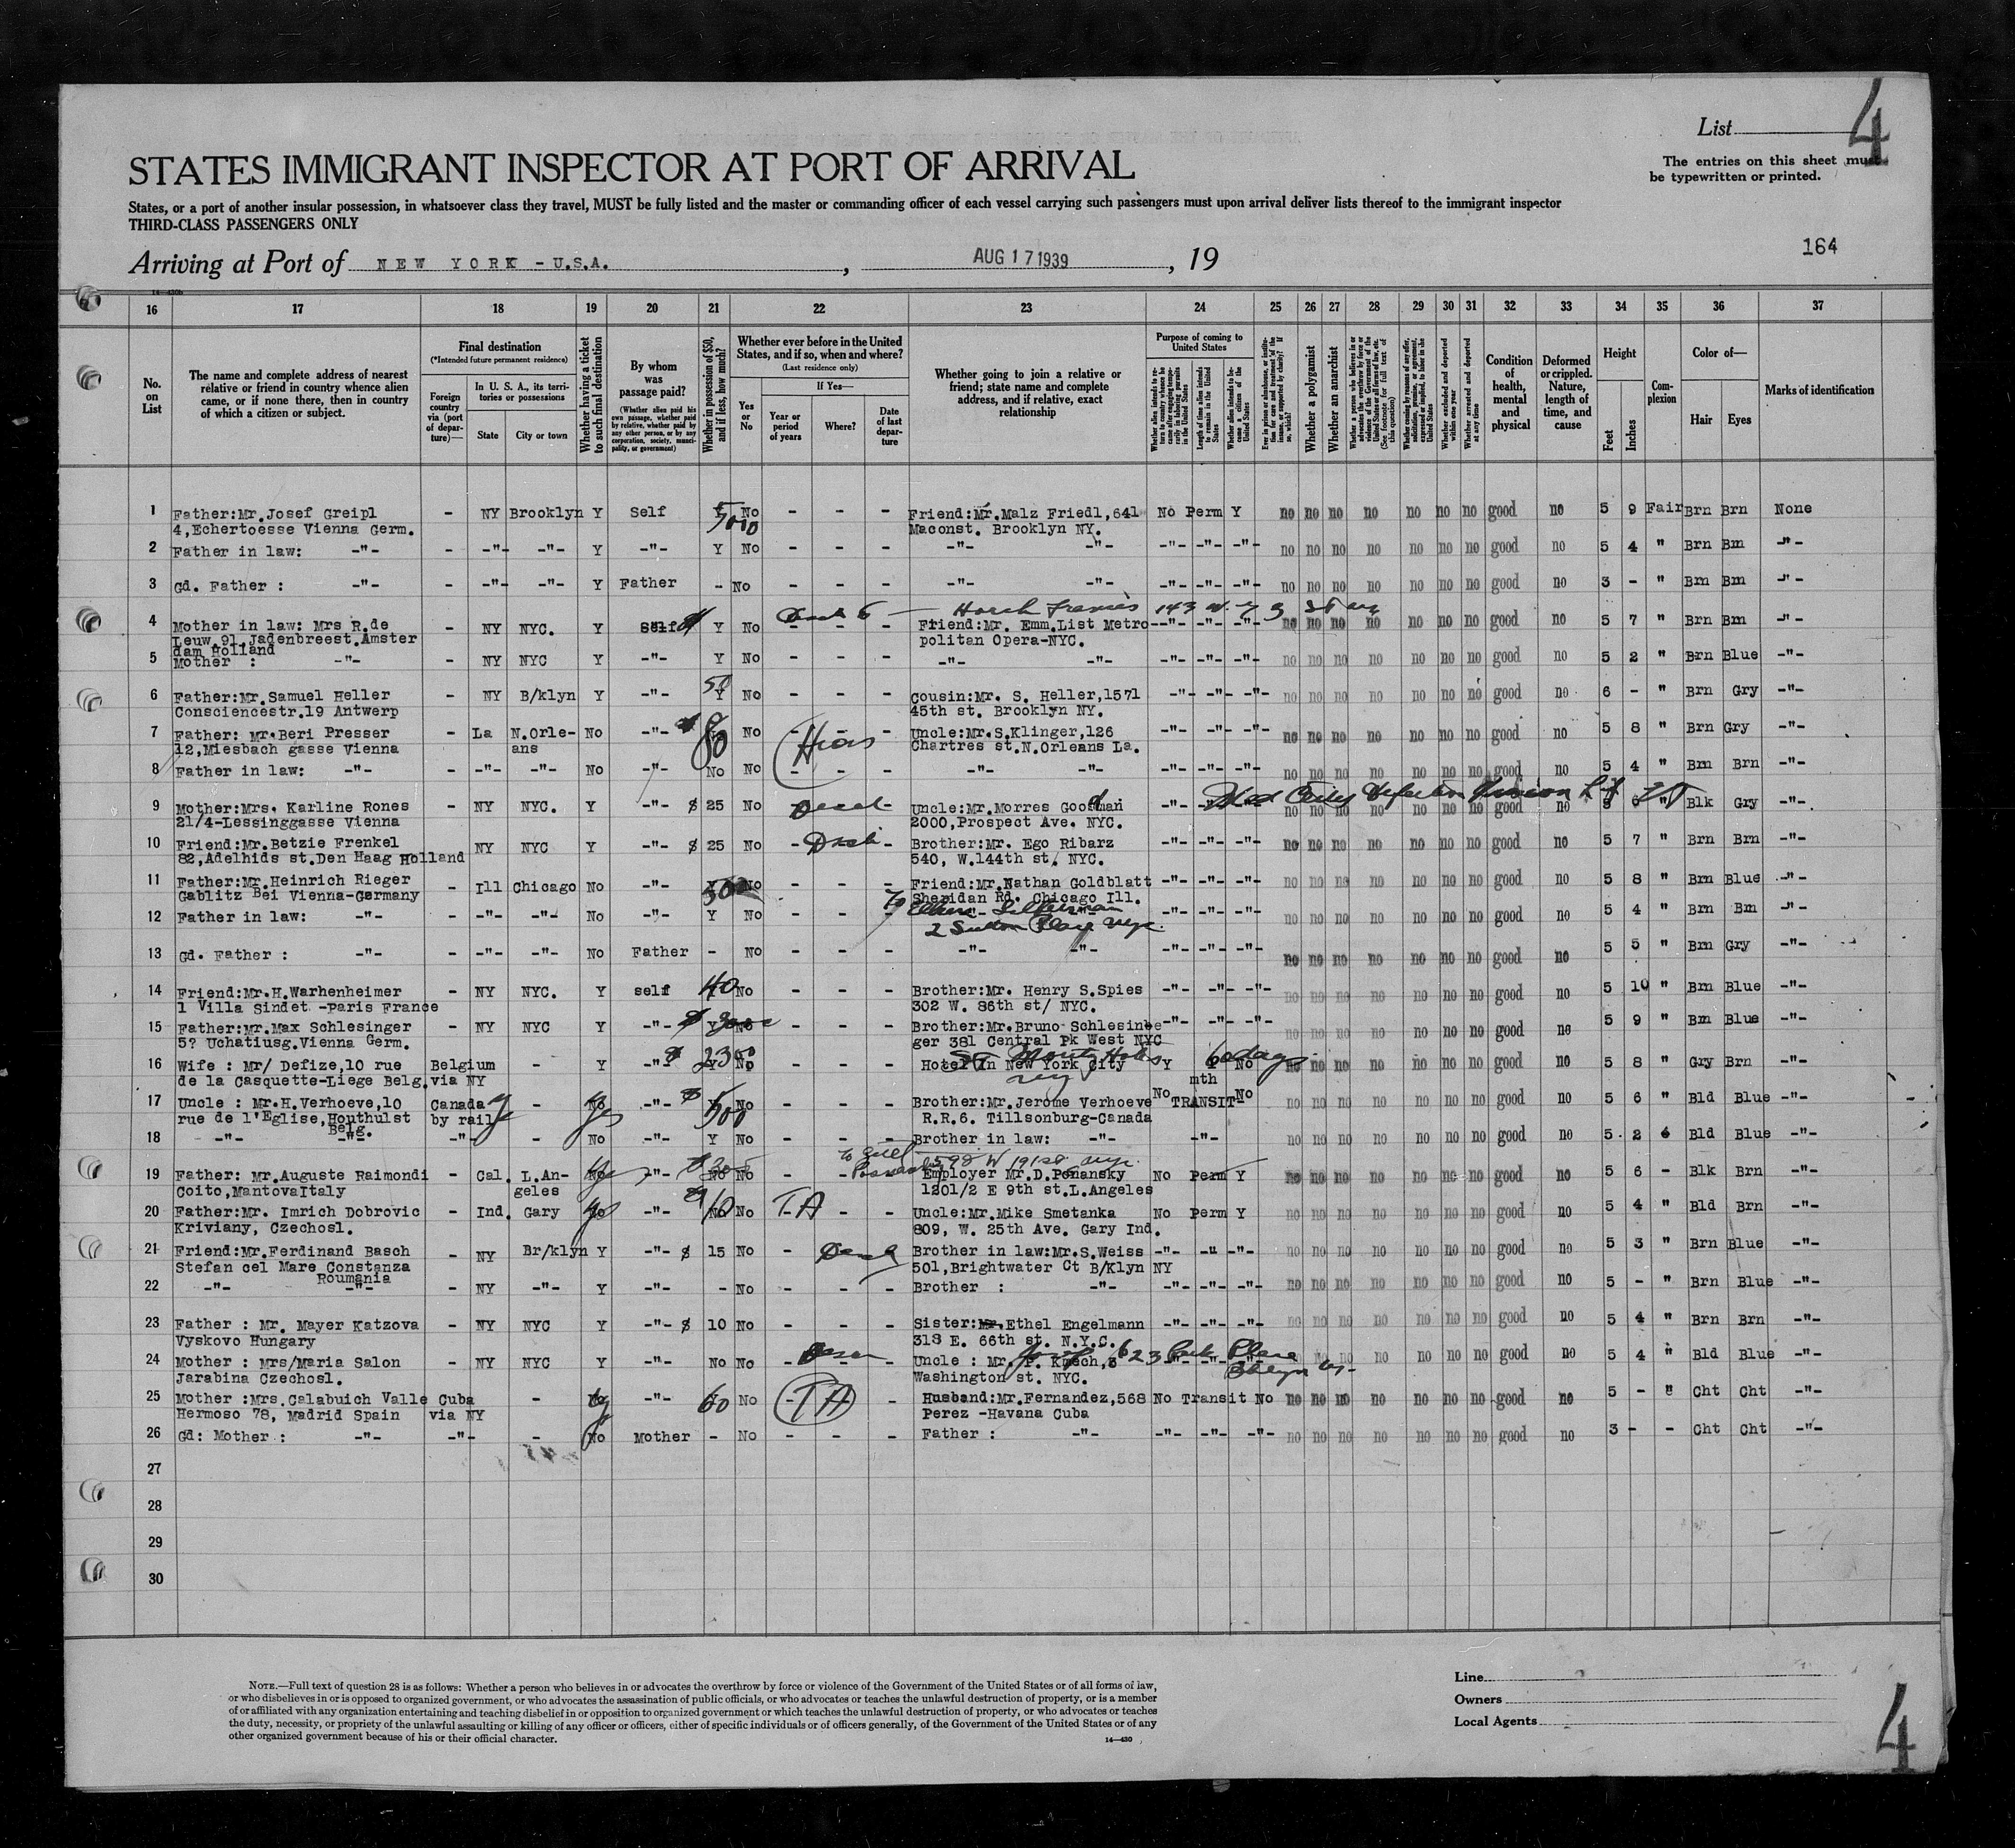 List 4
The entries on this sheet must
be typewritten or printed.
STATES IMMIGRANT INSPECTOR AT PORT OF ARRIVAL
States, or a port of another insular possession, in whatsoever class they travel, MUST be fully listed and the master or commanding officer of each vessel carrying such passengers must upon arrival deliver lists thereof to the immigrant inspector
THIRD-CLASS PASSENGERS ONLY
164
Arriving at Port of NEW YORK - U.S.A. , AUG 17 1939 , 19
16 17 18 19 20 21 22 23 24 25 26 27 28 29 30 31 32 33 34 35 36 37
No. on List
The name and complete address of nearest relative or friend in country whence alien came, or if none there, then in country of which a citizen or subject.
Final destination
(*Intended future permanent residence)
Foreign country via (port of departure)—
In U. S. A., its territories or possessions
State
City or town
Whether having a ticket to such final destination
By whom was passage paid?
(Whether alien paid his own passage, whether paid by relative, whether paid by any other person, or by any corporation, society, municipality, or government)
Whether in possession of $50, and if less, how much?
Whether ever before in the United States, and if so, when and where?
(Last residence only)
Yes or No
If Yes—
Year or period of years
Where?
Date of last departure
Whether going to join a relative or friend; state name and complete address, and if relative, exact relationship
Purpose of coming to United States
Length of time alien intends to remain in the United States
Whether alien intends to become a citizen of the United States
Whether a polygamist
Whether an anarchist
Whether excluded and deported within one year
Whether arrested and deported at any time
Condition of health, mental and physical
Deformed or crippled. Nature, length of time, and cause
Height
Feet
Inches
Complexion
Color of—
Hair
Eyes
Marks of identification
1 Father:Mr.Josef Greipl - NY Brooklyn Y Self No - - - Friend:Mr.Malz Friedl,641 No Perm Y no no no no no no no good no 5 9 Fair Brn Brn None
4,Echertoesse Vienna Germ. 5000 Maconst. Brooklyn NY.
2 Father in law: -"- - -"- -"- Y -"- Y No - - - -"- -"- -"- -"- -"- no no no no no no no good no 5 4 " Brn Brn -"-
3 Gd. Father : -"- - -"- -"- Y Father - No - - - -"- -"- -"- -"- -"- no no no no no no no good no 3 - " Brn Brn -"-
4 Mother in law: Mrs R.de - NY NYC. Y Self Y No - - - Friend:Mr. Emm.List Metro- -"- -"- -"- no no no no no no no good no 5 7 " Brn Brn -"-
Leuw 91 Jadenbreest.Amster politan Opera-NYC.
dam Holland
5 Mother : -"- - NY NYC Y -"- Y No - - - -"- -"- -"- -"- -"- no no no no no no no good no 5 2 " Brn Blue -"-
6 Father:Mr.Samuel Heller - NY B/klyn Y -"- 50 No - - - Cousin:Mr. S. Heller,1571 -"- -"- -"- no no no no no no no good no 6 - " Brn Gry -"-
Consciencestr.19 Antwerp 45th st. Brooklyn NY.
7 Father: Mr.Beri Presser - La N.Orle- No -"- 80 No - Hias - Uncle:Mr.S.Klinger,126 -"- -"- -"- no no no no no no no good no 5 8 " Brn Gry -"-
12,Miesbach gasse Vienna ans Chartres st.N.Orleans La.
8 Father in law: -"- - -"- -"- No -"- No No - - - -"- -"- -"- -"- -"- no no no no no no no good no 5 4 " Brn Brn -"-
9 Mother:Mrs. Karline Rones - NY NYC. Y -"- $ 25 No Uncle:Mr.Morres Goodman -"- no no no no no no no good no " Blk Gry -"-
21/4-Lessinggasse Vienna 2000,Prospect Ave. NYC.
10 Friend:Mr.Betzie Frenkel NY NYC Y -"- $ 25 No - - Brother:Mr. Ego Ribarz -"- -"- -"- no no no no no no no good no 5 7 " Brn Brn -"-
82,Adelhids st.Den Haag Holland 540, W.144th st. NYC.
11 Father:Mr.Heinrich Rieger - Ill Chicago No -"- 500 No - - - Friend:Mr.Nathan Goldblatt -"- -"- -"- no no no no no no no good no 5 8 " Brn Blue -"-
Gablitz Bei Vienna-Germany Sheridan Rd. Chicago Ill.
12 Father in law: -"- - -"- -"- No -"- Y No - - -"- -"- -"- no no no no no no no good no 5 4 " Brn Brn -"-
2 Sutton Place nyc.
13 Gd. Father : -"- - -"- -"- No Father - No - - - -"- -"- -"- -"- -"- no no no no no no no good no 5 5 " Brn Gry -"-
14 Friend:Mr.H.Warhenheimer - NY NYC. Y self 40 No - - - Brother:Mr. Henry S.Spies -"- -"- -"- no no no no no no no good no 5 10 " Brn Blue -"-
1 Villa Sindet -Paris France 302 W. 86th st/ NYC.
15 Father:Mr.Max Schlesinger - NY NYC Y -"- No - - - Brother:Mr.Bruno Schlesinge -"- -"- -"- no no no no no no no good no 5 9 " Brn Blue -"-
5? Uchatiusg.Vienna Germ. ger 381 Central Pk West NYC
16 Wife : Mr/ Defize,10 rue Belgium - Y -"- $ 2300 No - - - Hotel in New York City Y 60 days No no no no no no no no good no 5 8 " Gry Brn -"-
de la Casquette-Liege Belg. via NY mth
17 Uncle : Mr.H.Verhoeve,10 Canada - No yes -"- $ 500 No - - - Brother:Mr.Jerome Verhoeve No TRANSIT No no no no no no no no good no 5 6 " Bld Blue -"-
rue de l'Eglise,Houthulst by rail R.R.6. Tillsonburg-Canada
Belg.
18 -"- -"- -"- - No -"- Y No - - - Brother in law: -"- -"- no no no no no no no good no 5 2 Bld Blue -"-
598 W 191 st. nyc.
19 Father: Mr.Auguste Raimondi - Cal. L.An- No -"- No No - - Employer Mr.D.Ponansky No Perm Y no no no no no no no good no 5 6 - Blk Brn -"-
Coito,MantovaItaly geles 1201/2 E 9th st.L.Angeles
20 Father:Mr. Imrich Dobrovic - Ind. Gary No yes -"- $ 10 No TA - - Uncle:Mr.Mike Smetanka No Perm Y no no no no no no no good no 5 4 " Bld Brn -"-
Kriviany, Czechosl. 809, W. 25th Ave. Gary Ind.
21 Friend:Mr.Ferdinand Basch - NY Br/klyn Y -"- $ 15 No - Brother in law:Mr.S.Weiss -"- -"- -"- no no no no no no no good no 5 3 " Brn Blue -"-
Stefan cel Mare Constanza 501,Brightwater Ct B/Klyn NY
Roumania
22 -"- -"- - NY -"- Y -"- - No - - - Brother : -"- -"- -"- -"- no no no no no no no good no 5 - " Brn Blue -"-
23 Father : Mr. Mayer Katzova - NY NYC Y -"- $ 10 No - - - Sister: Ethel Engelmann -"- -"- -"- no no no no no no no good no 5 4 " Brn Brn -"-
Vyskovo Hungary 318 E. 66th st. N.Y.C.
24 Mother : Mrs/Maria Salon - NY NYC Y -"- No No - - - Uncle : Mr. 623 Park Place no no no no no no good no 5 4 " Bld Blue -"-
Jarabina Czechosl. Washington st. NYC.
25 Mother :Mrs.Calabuich Valle Cuba - -"- 60 No TA - Husband:Mr.Fernandez,568 No Transit No no no no no no no no good no 5 - " Cht Cht -"-
Hermoso 78, Madrid Spain via NY Perez -Havana Cuba
26 Gd: Mother : -"- -"- - No Mother - No - - - Father : -"- -"- -"- -"- no no no no no no no good no 3 - - Cht Cht -"-
27
28
29
30
NOTE.—Full text of question 28 is as follows: Whether a person who believes in or advocates the overthrow by force or violence of the Government of the United States or of all forms of law,
or who disbelieves in or is opposed to organized government, or who advocates the assassination of public officials, or who advocates or teaches the unlawful destruction of property, or is a member
of or affiliated with any organization entertaining and teaching disbelief in or opposition to organized government or which teaches the unlawful destruction of property, or who advocates or teaches
the duty, necessity, or propriety of the unlawful assaulting or killing of any officer or officers, either of specific individuals or of officers generally, of the Government of the United States or of any
other organized government because of his or their official character.
14—430
Line
Owners
Local Agents
4